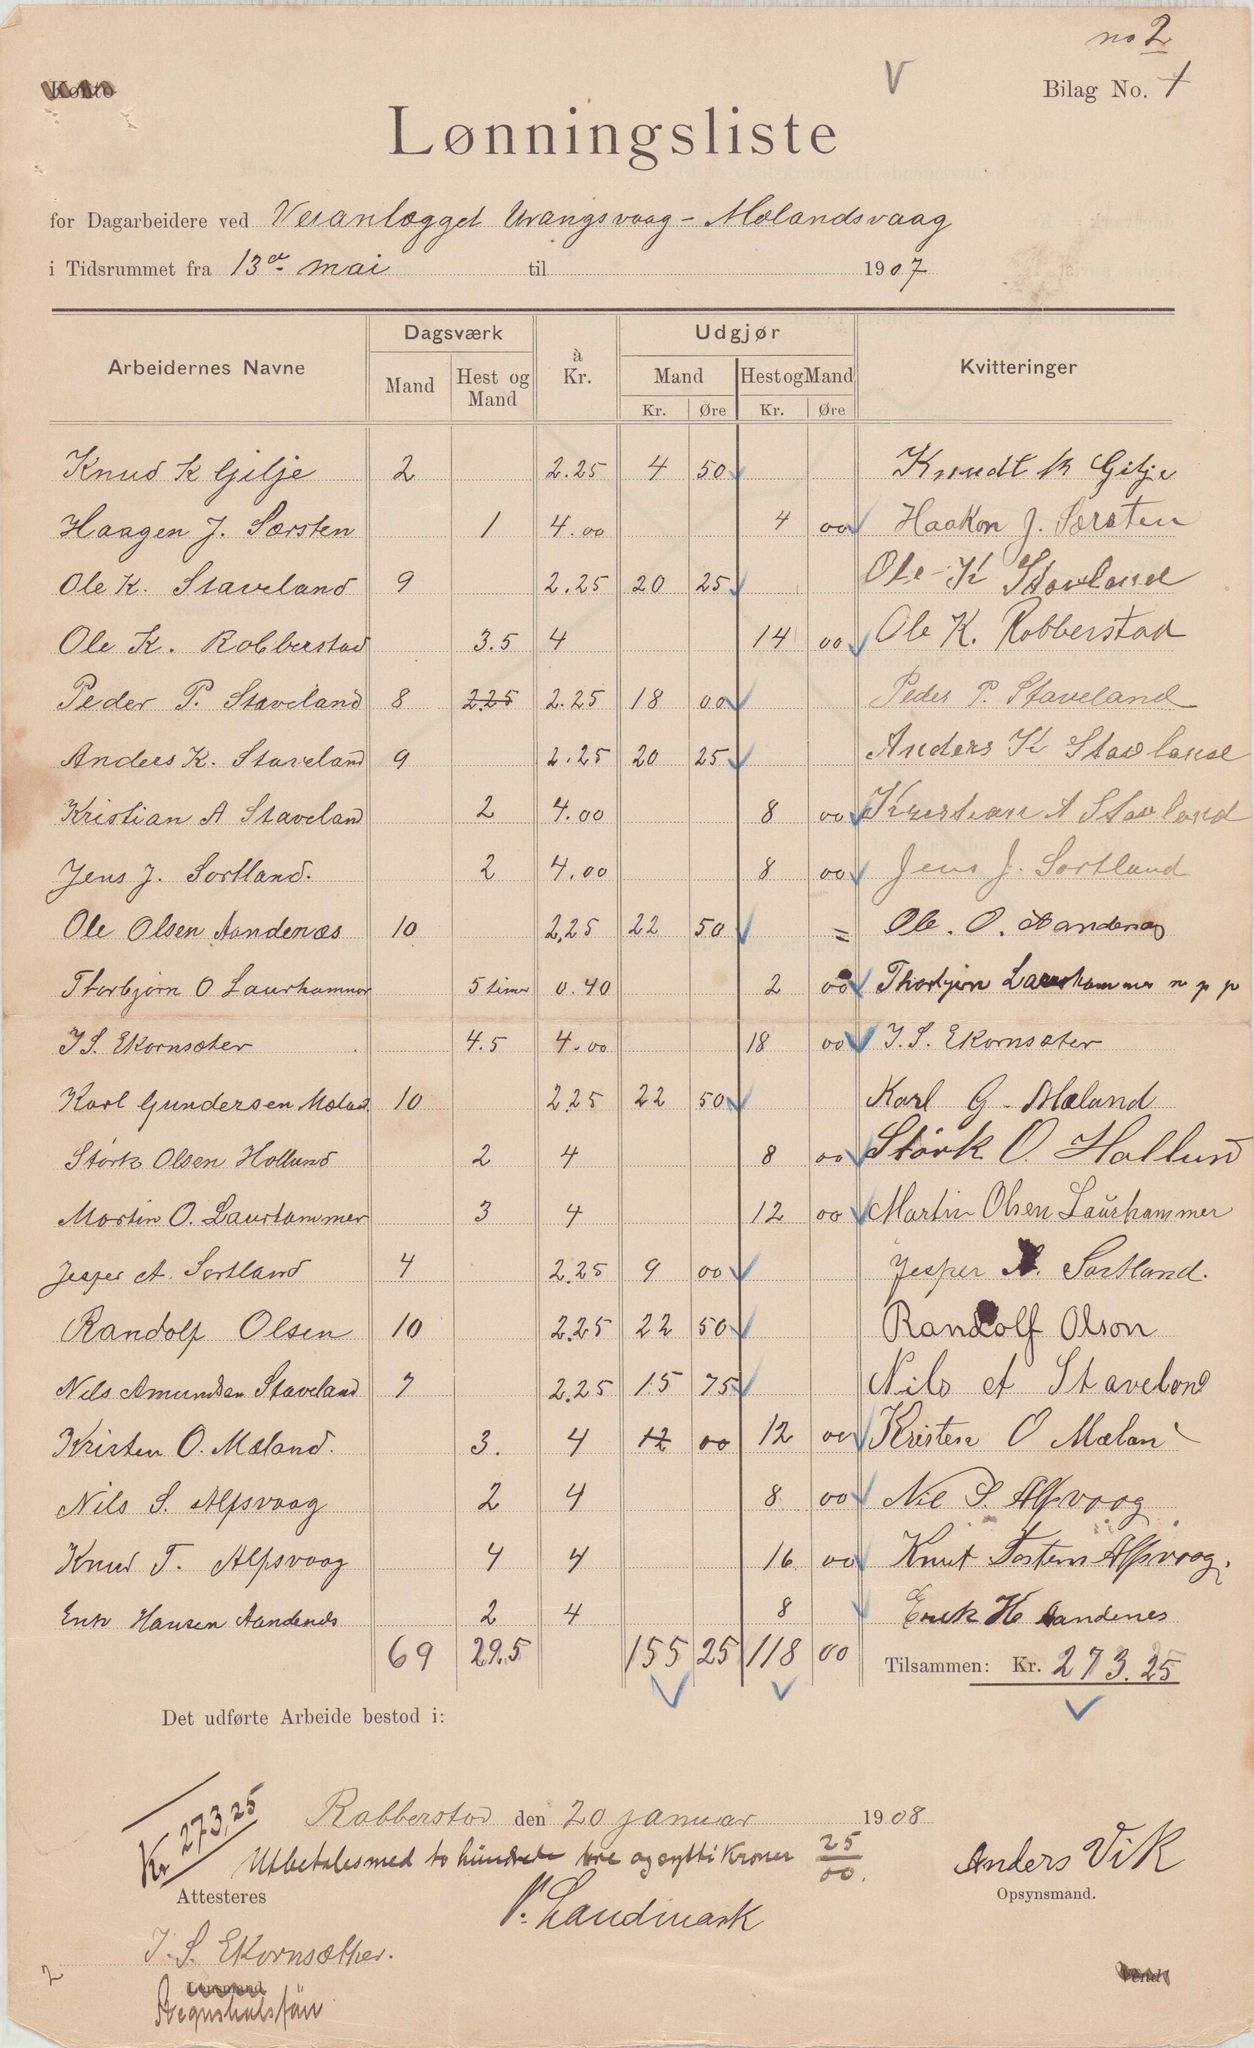 no 2
Konto
Bilag No. 1
V
Lønningsliste
for Dagarbeidere ved Veianlægget Urangsvaag - Mælandsvaag
i Tidsrummet fra 13de mai til 1907
Arbeidernes Navne Dagsværk à Kr. Udgjør Kvitteringer
Mand Hest og Mand Mand Hest og Mand
Kr. Øre Kr. Øre
Knud K Gilje 2 2.25 4 50 Knudt K Gilje
Haagen J. Særsten 1 4.00 4 00 Haakon J. Særsten
Ole K. Staveland 9 2.25 20 25 Ole K Stavland
Ole K. Robberstad 3.5 4 14 00 Ole K. Robberstad
Peder P. Staveland 8 2.25 2.25 18 00 Peder P. Staveland
Anders K. Staveland 9 2.25 20 25 Anders K Stavland
Kristian A Staveland 2 4.00 8 00 Kristian A Stavland
Jens J. Sortland. 2 4.00 8 00 Jens J. Sortland
Ole Olsen Aandenæs 10 2,25 22 50 = Ole. O. Aandenæs
Thorbjørn O Laurhammer 5 timer 0.40 2 00 Thorbjørn Laurhammer m p p
J S. Ekornsæter 4.5 4.00 18 00 J. S. Ekornsæter
Karl Gundersen Mæland 10 2.25 22 50 Karl G. Mæland
Størk Olsen Hollund 2 4 8 00 Størk O. Hollund
Martin O. Laurhammer 3 4 12 00 Martin Olsen Laurhammer
Jesper A. Sortland 4 2.25 9 00 Jesper A. Sortland.
Randolf Olsen 10 2.25 22 50 Randolf Olson
Nils Amundsen Staveland 7 2.25 15 75 Nils A Staveland
Kristen O. Mæland. 3. 4 12 00 12 00 Kristen O Mælan
Nils S. Alfsvaag 2 4 8 00 Nil S. Alfsvaag
Knud T. Alfsvaag 4 4 16 00 Knut Alfsvaag.
Erik Hansen Aandenæs 2 4 8 Erik H Aandenes
69 29.5 155 25 118 00 Tilsammen: Kr. 273.25
Det udførte Arbeide bestod i:
Kr 273,25
Robberstad den 20 januar 1908
Utbetales med to hundrede tre og sytti Kroner 25/00.
Anders Vik
Attesteres
Opsynsmand.
P. Landmark
J. S. Ekornsæther.
Lensmand
Vend!
2